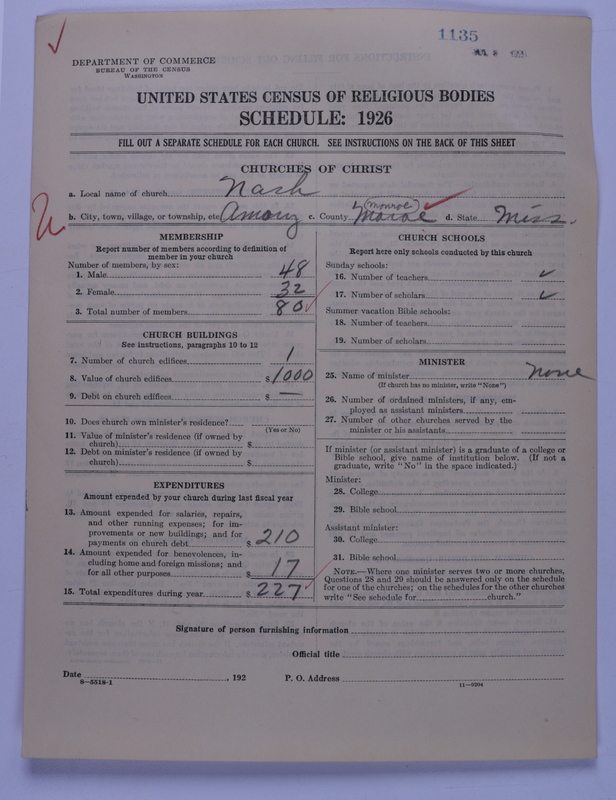 1135
DEPARTMENT OF COMMERCE
BUREAU OF THE CENSUS
WASHINGTON
UNITED STATES CENSUS OF RELIGIOUS BODIES
SCHEDULE: 1926
FILL OUT A SEPARATE SCHEDULE FOR EACH CHURCH. SEE INSTRUCTIONS ON THE BACK OF THIS SHEET
CHURCHES OF CHRIST
a. Local name of church Nash
b. City, town, village, or township, etc. Amory c. County (Monroe) Maroe d. State Miss.
MEMBERSHIP
Report number of members according to definition of
member in your church
Number of members, by sex:
1. Male 48
2. Female 32
3. Total number of members 80
CHURCH BUILDINGS
See instructions, paragraphs 10 to 12
7. Number of church edifices 1
8. Value of church edifices $1000
9. Debt on church edifices $ —
10. Does church own minister's residence?
(Yes or No)
11. Value of minister's residence (if owned by
church) $
12. Debt on minister's residence (if owned by
church) $
EXPENDITURES
Amount expended by your church during last fiscal year
13. Amount expended for salaries, repairs,
and other running expenses; for im-
provements or new buildings; and for
payments on church debt $ 210
14. Amount expended for benevolences, in-
cluding home and foreign missions; and
for all other purposes $ 17
15. Total expenditures during year $ 227
CHURCH SCHOOLS
Report here only schools conducted by this church
Sunday schools:
16. Number of teachers ✓
17. Number of scholars ✓
Summer vacation Bible schools:
18. Number of teachers
19. Number of scholars
MINISTER
25. Name of minister none
(If church has no minister, write "None")
26. Number of ordained ministers, if any, em-
ployed as assistant ministers
27. Number of other churches served by the
minister or his assistants
If minister (or assistant minister) is a graduate of a college or
Bible school, give name of institution below. (If not a
graduate, write "No" in the space indicated.)
Minister:
28. College
29. Bible school
Assistant minister:
30. College
31. Bible school
NOTE.—Where one minister serves two or more churches,
Questions 28 and 29 should be answered only on the schedule
for one of the churches; on the schedules for the other churches
write "See schedule for church."
Signature of person furnishing information
Official title
Date , 192 P. O. Address
8—5518-1
11—9204